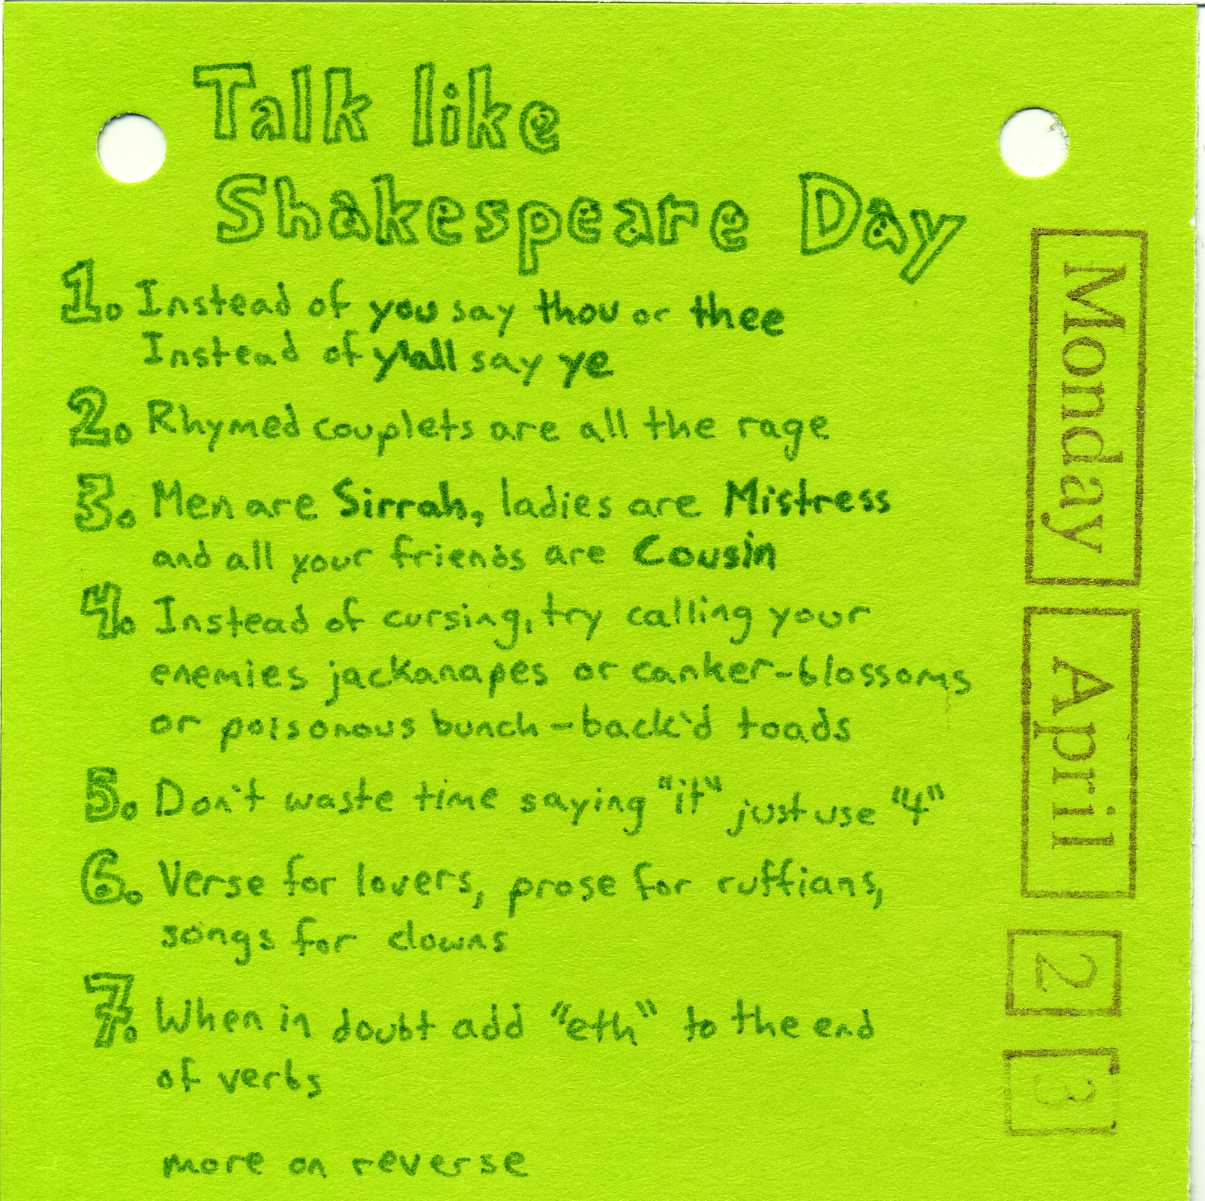 Talk like
Shakespeare Day
1. Instead of you say thou or thee
Instead of y'all say ye
2. Rhymed couplets are all the rage
3. Men are Sirrah, ladies are Mistress
and all your friends are Cousin
4. Instead of cursing, try calling your
enemies jackanapes or canker-blossoms
or poisonous bunch-back'd toads
5. Don't waste time saying "it" just use "4"
6. Verse for lovers, prose for ruffians,
songs for clowns
7. When in doubt add "eth" to the end
of verbs
more on reverse
Monday April 2 3